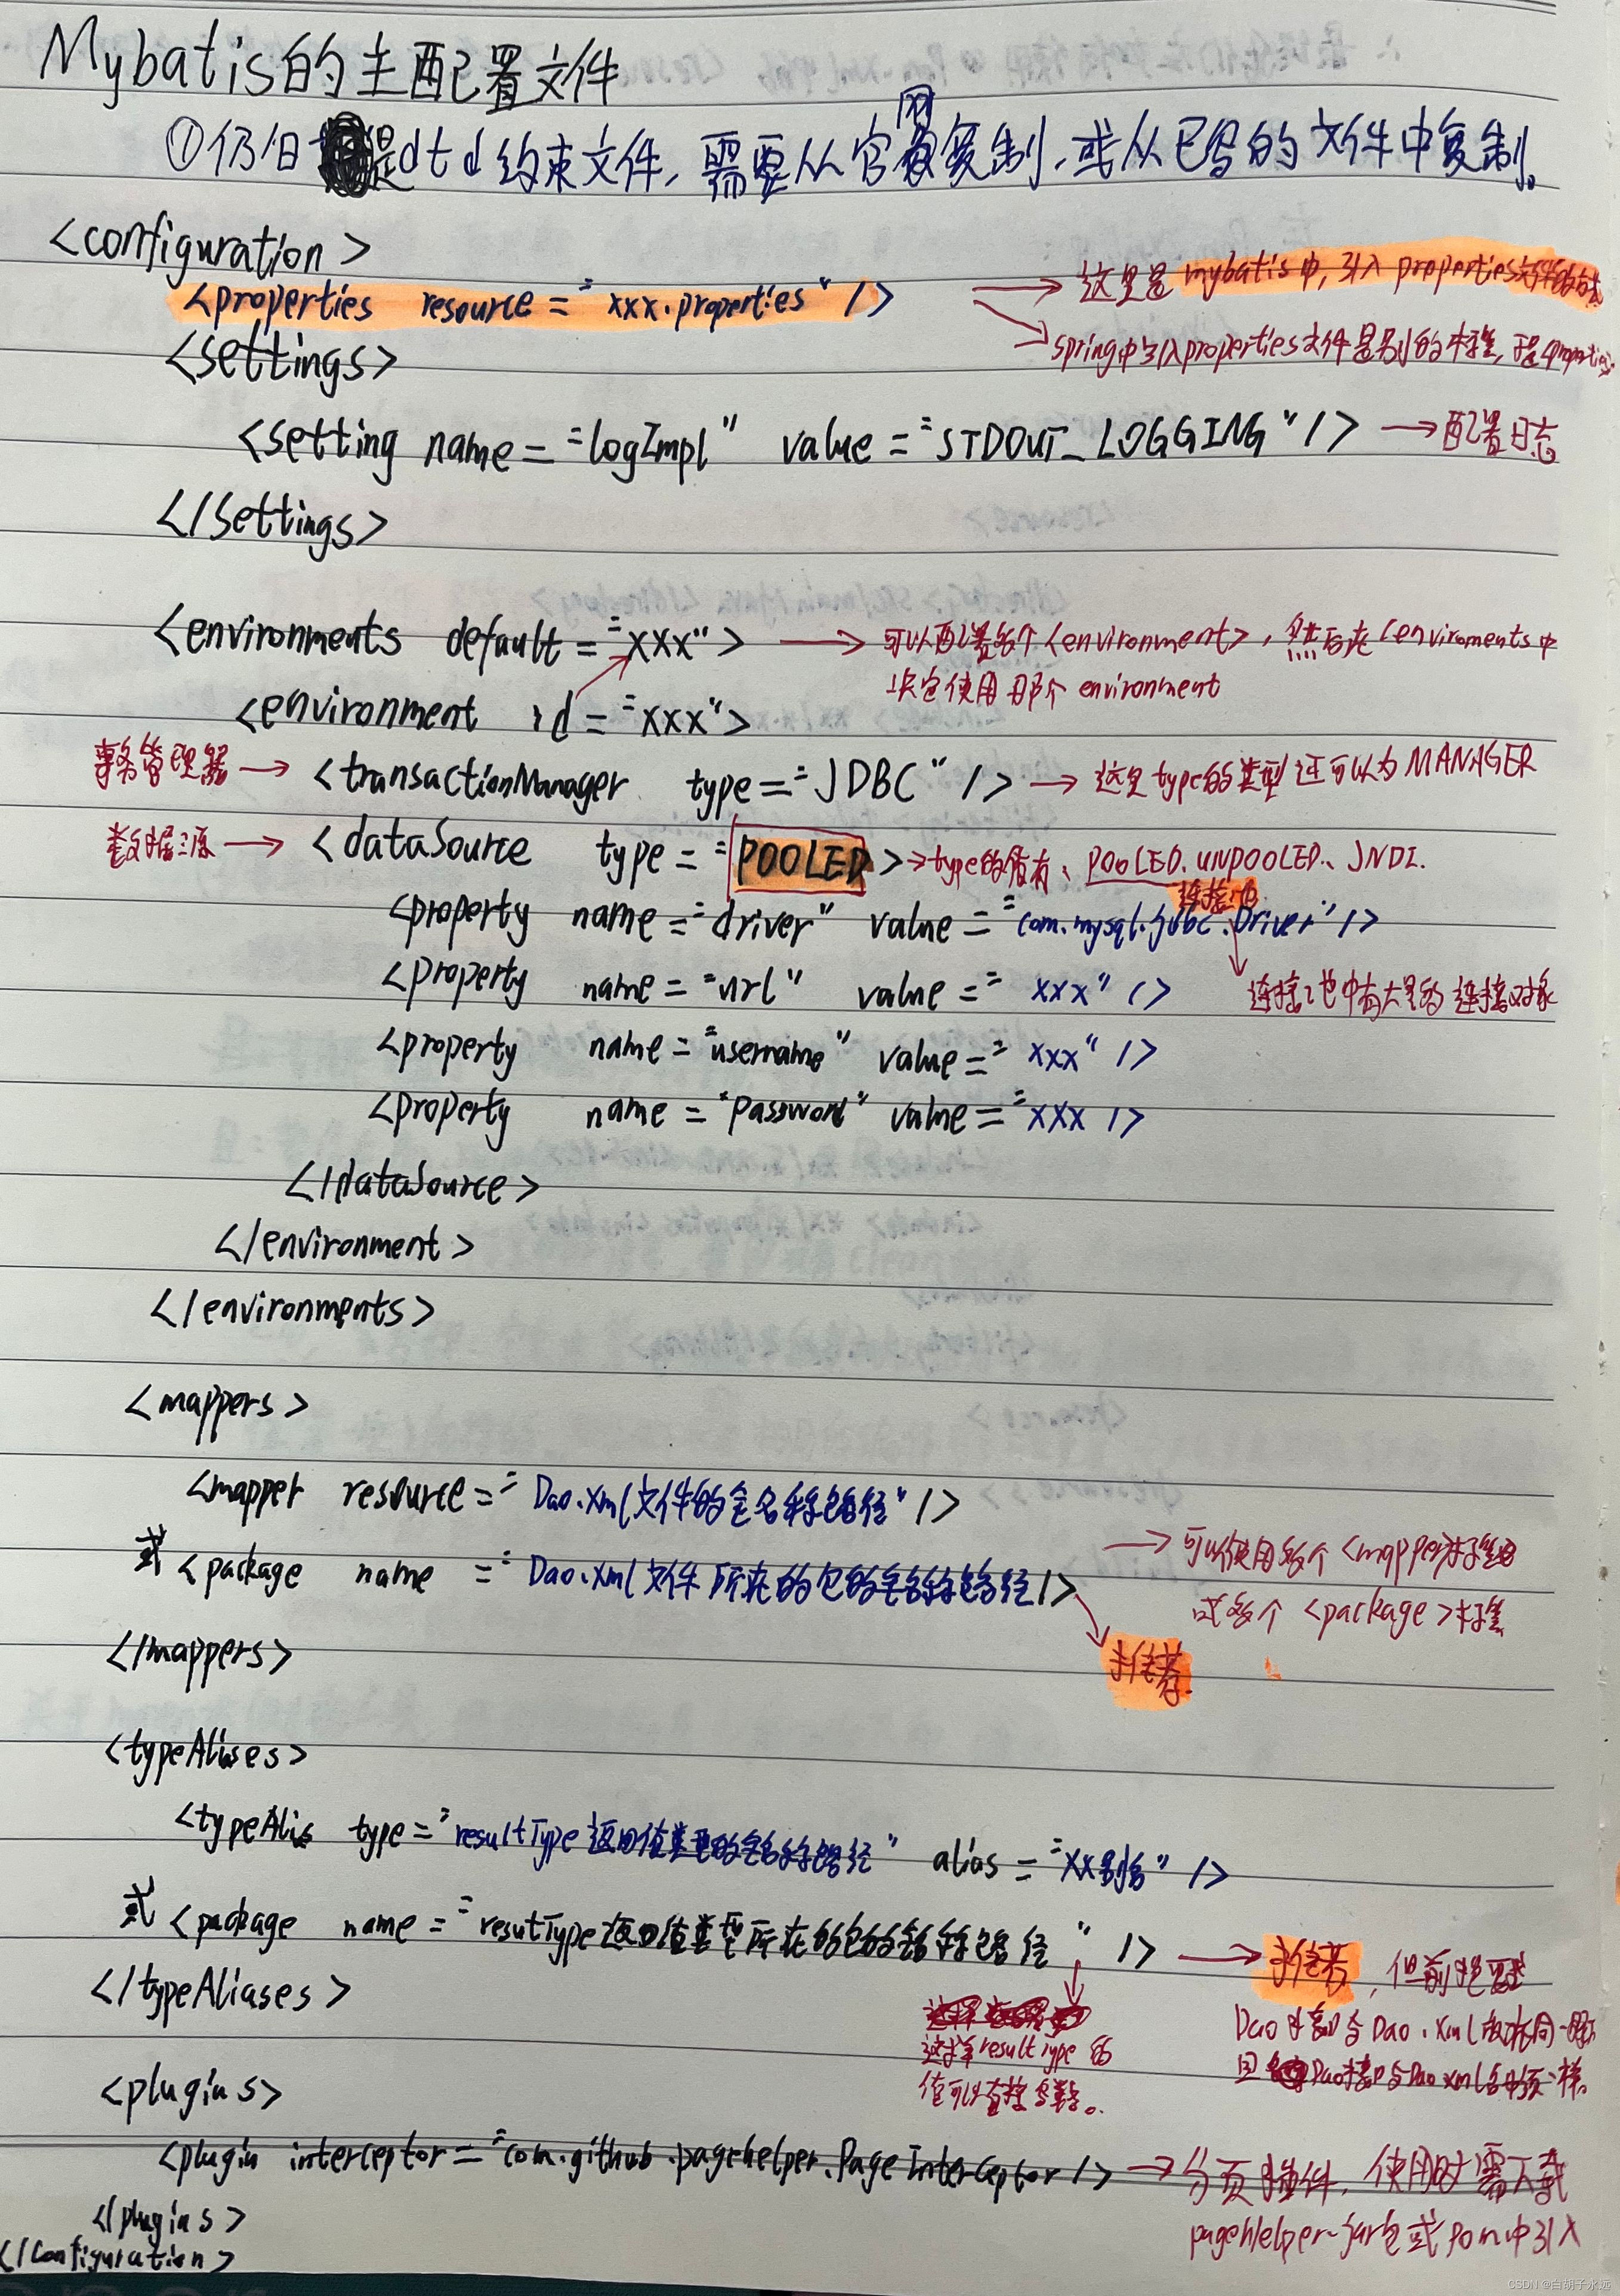 Mybatis的主配置文件
①仍旧是dtd约束文件,需要从官网复制,或从已写的文件中复制。
<configuration>
<properties resource="xxx.properties"/> → 这里是mybatis中,引入properties文件的方法
→ spring中引入properties文件是别的标签,
<settings>
<setting name="logImpl" value="STDOUT_LOGGING"/> → 配置日志
</settings>
<environments default="xxx"> → 可以配置多个<environment>,然后在<enviroments中
决定使用哪个environment
<environment id="xxx">
事务管理器 → <transactionManager type="JDBC"/> → 这里type的类型还可以为MANAGER
数据源 → <dataSource type="POOLED> → type的值有、POOLED、UNPOOLED、JNDI.
连接池
<property name="driver" value="com.mysql.jdbc.Driver"/>
<property name="url" value="xxx"/> 连接池中有大量的连接对象
<property name="username" value="xxx"/>
<property name="password" value="xxx/>
</dataSource>
</environment>
</environments>
<mappers>
<mapper resource="Dao.xml文件的全名称路径"/>
或<package name="Dao.xml文件所在的包的全名称路径/> → 可以使用多个<mapper>标签
或多个<package>标签
</mappers> 推荐.
<typeAliases>
<typeAlis type="resultType返回值类型的全名称路径" alias="xx别名"/>
或<package name="resutType返回值类型所在的包的全名称路径"/> → 推荐,但前提要求
</typeAliases> Dao接口与Dao.xml
这样resultType的
Dao接口与Dao.xml
值可以直接
<plugins>
<plugin interceptor="com.github.pagehelper.PageInterceptor/> → 分页插件,使用时需下载
pageHelper-jar包或pom中引入
</plugins>
</configuration>
CSDN @白胡子永远